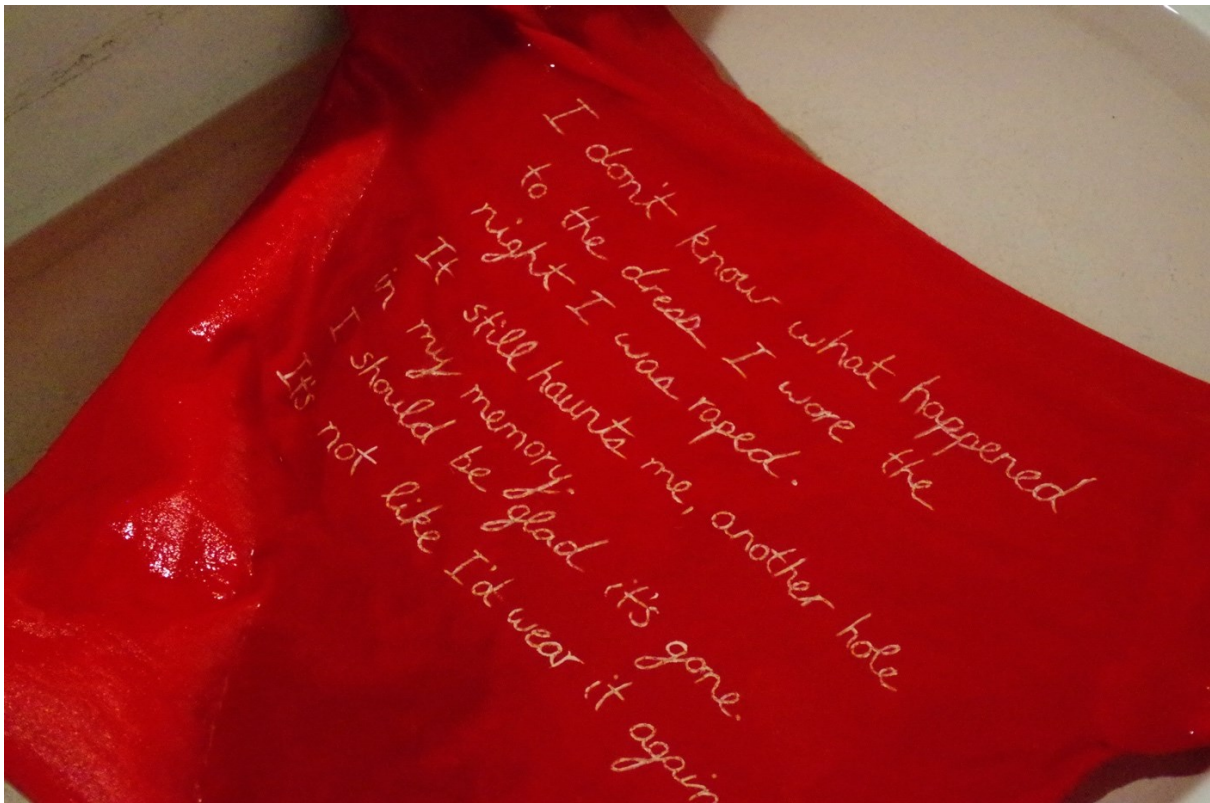 I don't know what happened
to the dress I wore the
night I was raped.
It still haunts me, another hole
in my memory.
I should be glad it's gone.
It's not like I'd wear it again